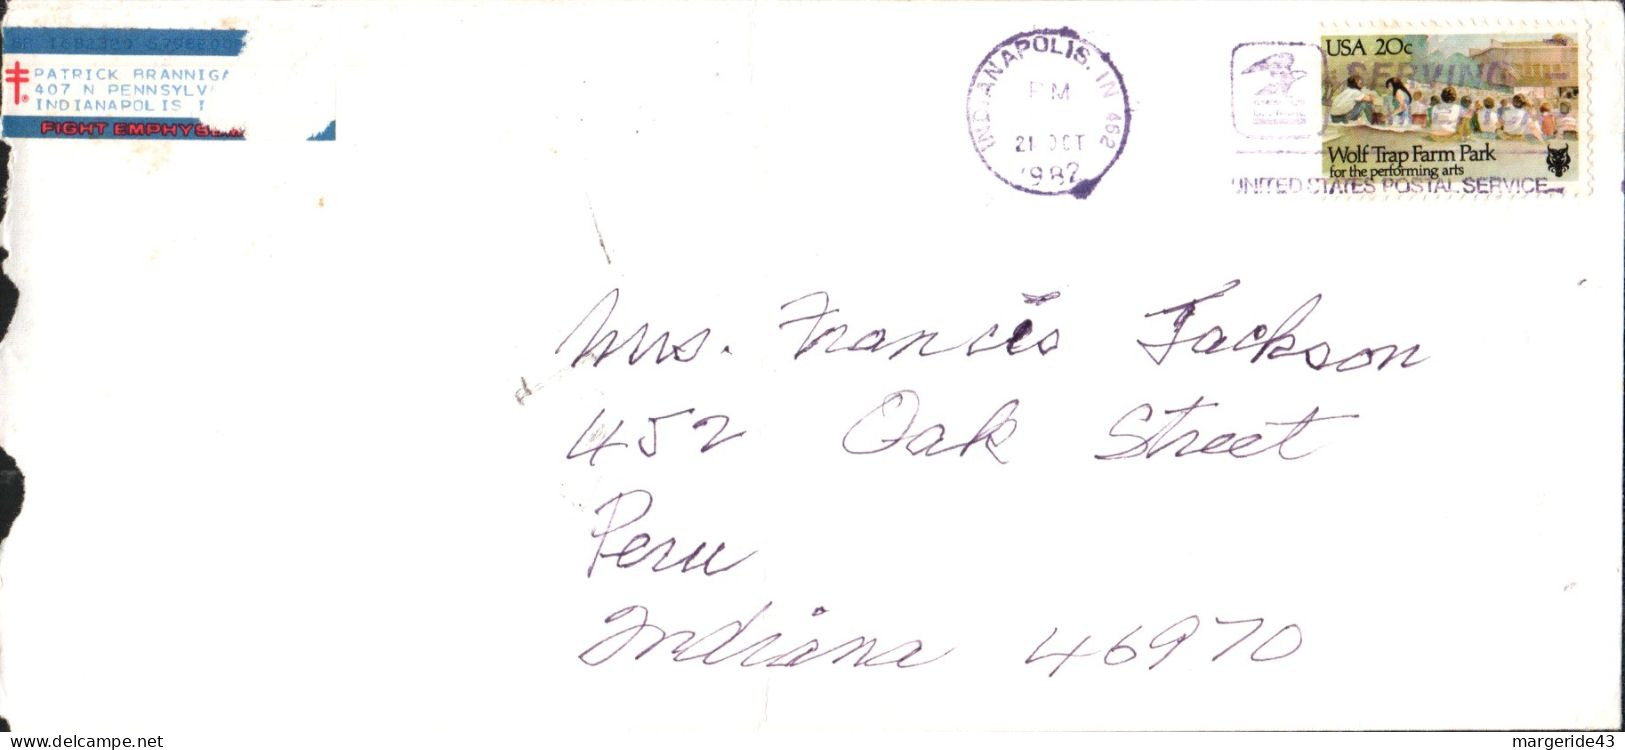 PATRICK BRANNIGA
407 N PENNSYLV
INDIANAPOLIS I
FIGHT EMPHYSEM
INDIANAPOLIS, IN 462
PM
21 OCT
1982
SERVING
AMERICA
UNITED STATES POSTAL SERVICE
USA 20c
Wolf Trap Farm Park
for the performing arts
Mrs. Francis Jackson
452 Oak Street
Peru
Indiana 46970
delcampe.net
margeride43